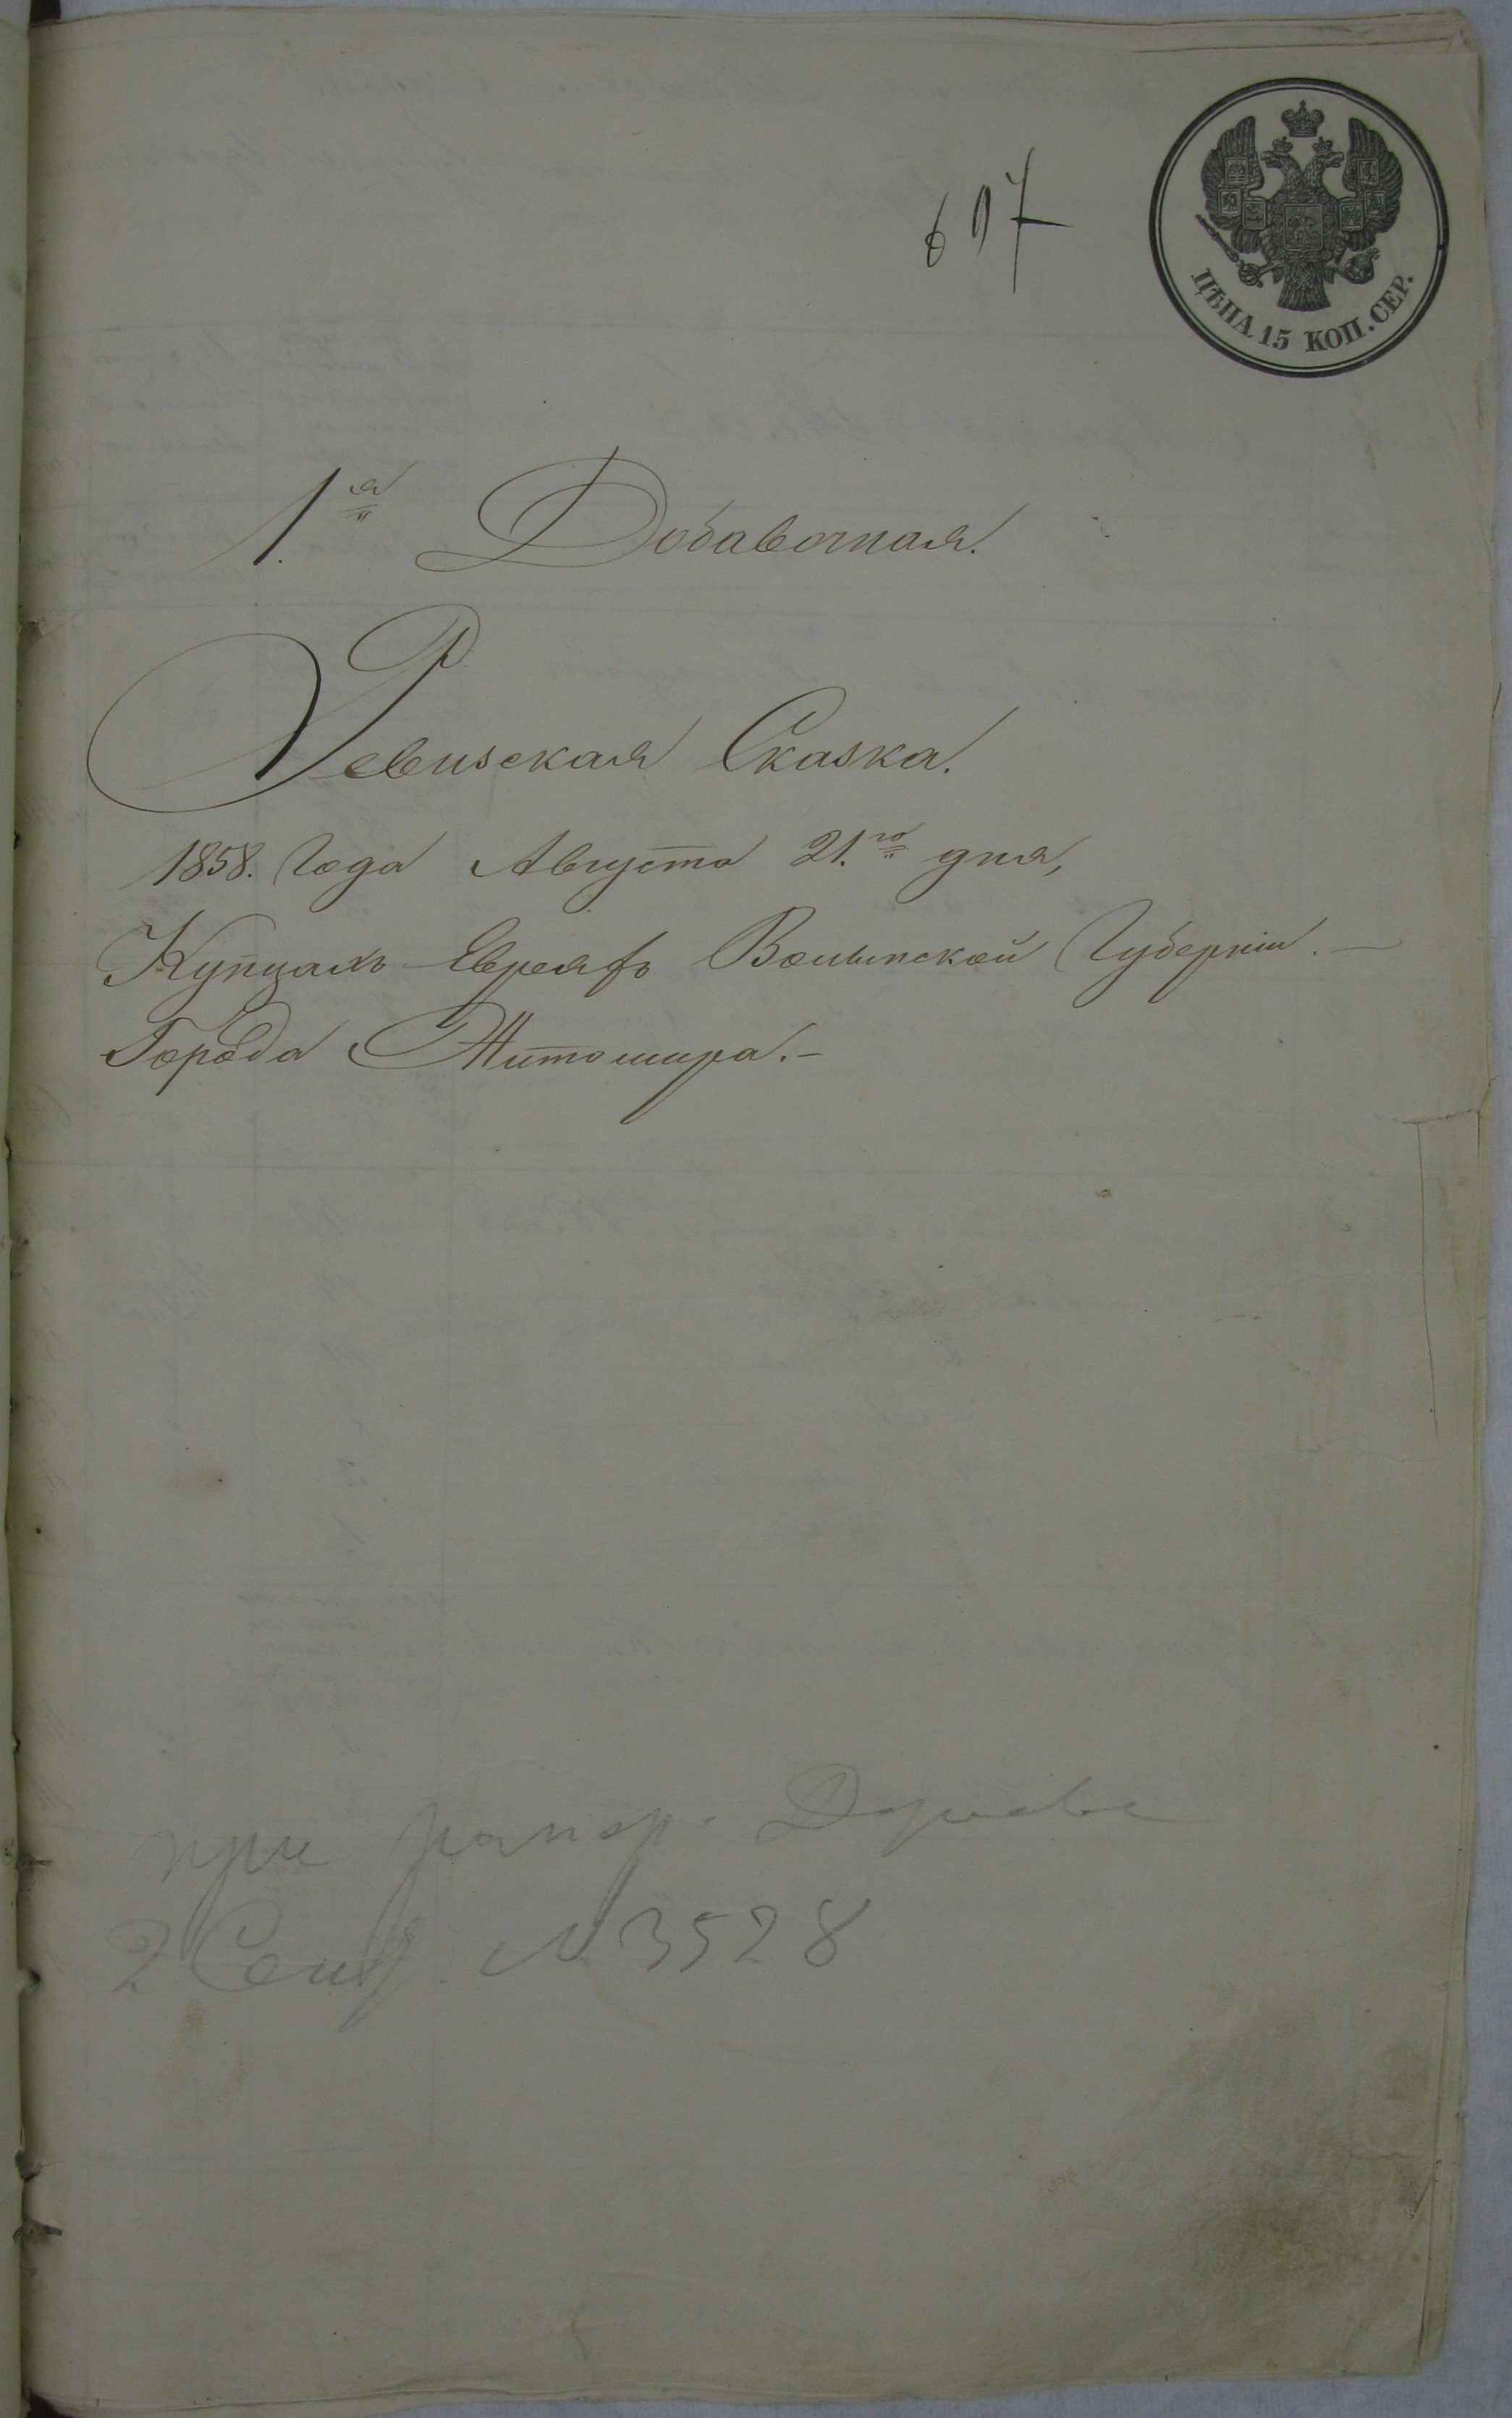 607
ЦѢНА 15 КОП. СЕР.
1.я Добавочная.
Ревизская Сказка.
1858. Года Августа 21.го дня,
Купцамъ Евреямъ Волынской Губерніи. —
Города Житомира. –
при рапор.
2 Сент. № 3528